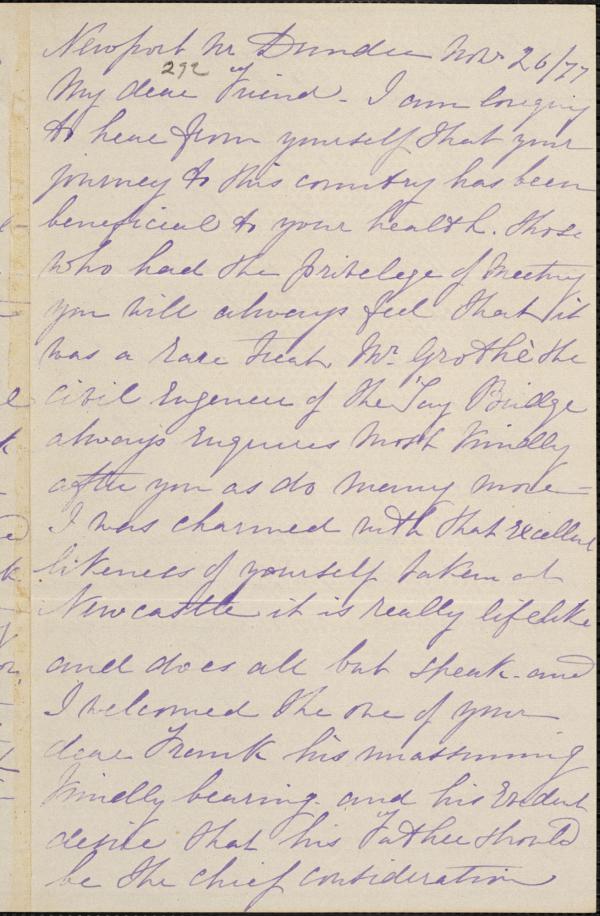 Newport Nr Dundee Nov 26/77
292
My dear Friend - I am longing
to hear from yourself that your
journey to this country has been
beneficial to your health. those
who had the privelege of Meeting
you will always feel that it
was a rare treat, Mr. Grothè the
Civil Engeneer of the Tay Bridge
always Enquires Most Kindly
after you as do Many More -
I was charmed with that Excellent
likeness of yourself taken at
Newcastle it is really lifelike
and does all but speak - and
I welcomed the one of your
dear Frank his unassuming
Kindly bearing - and his Evident
desire that his Father should
be the chief consideration